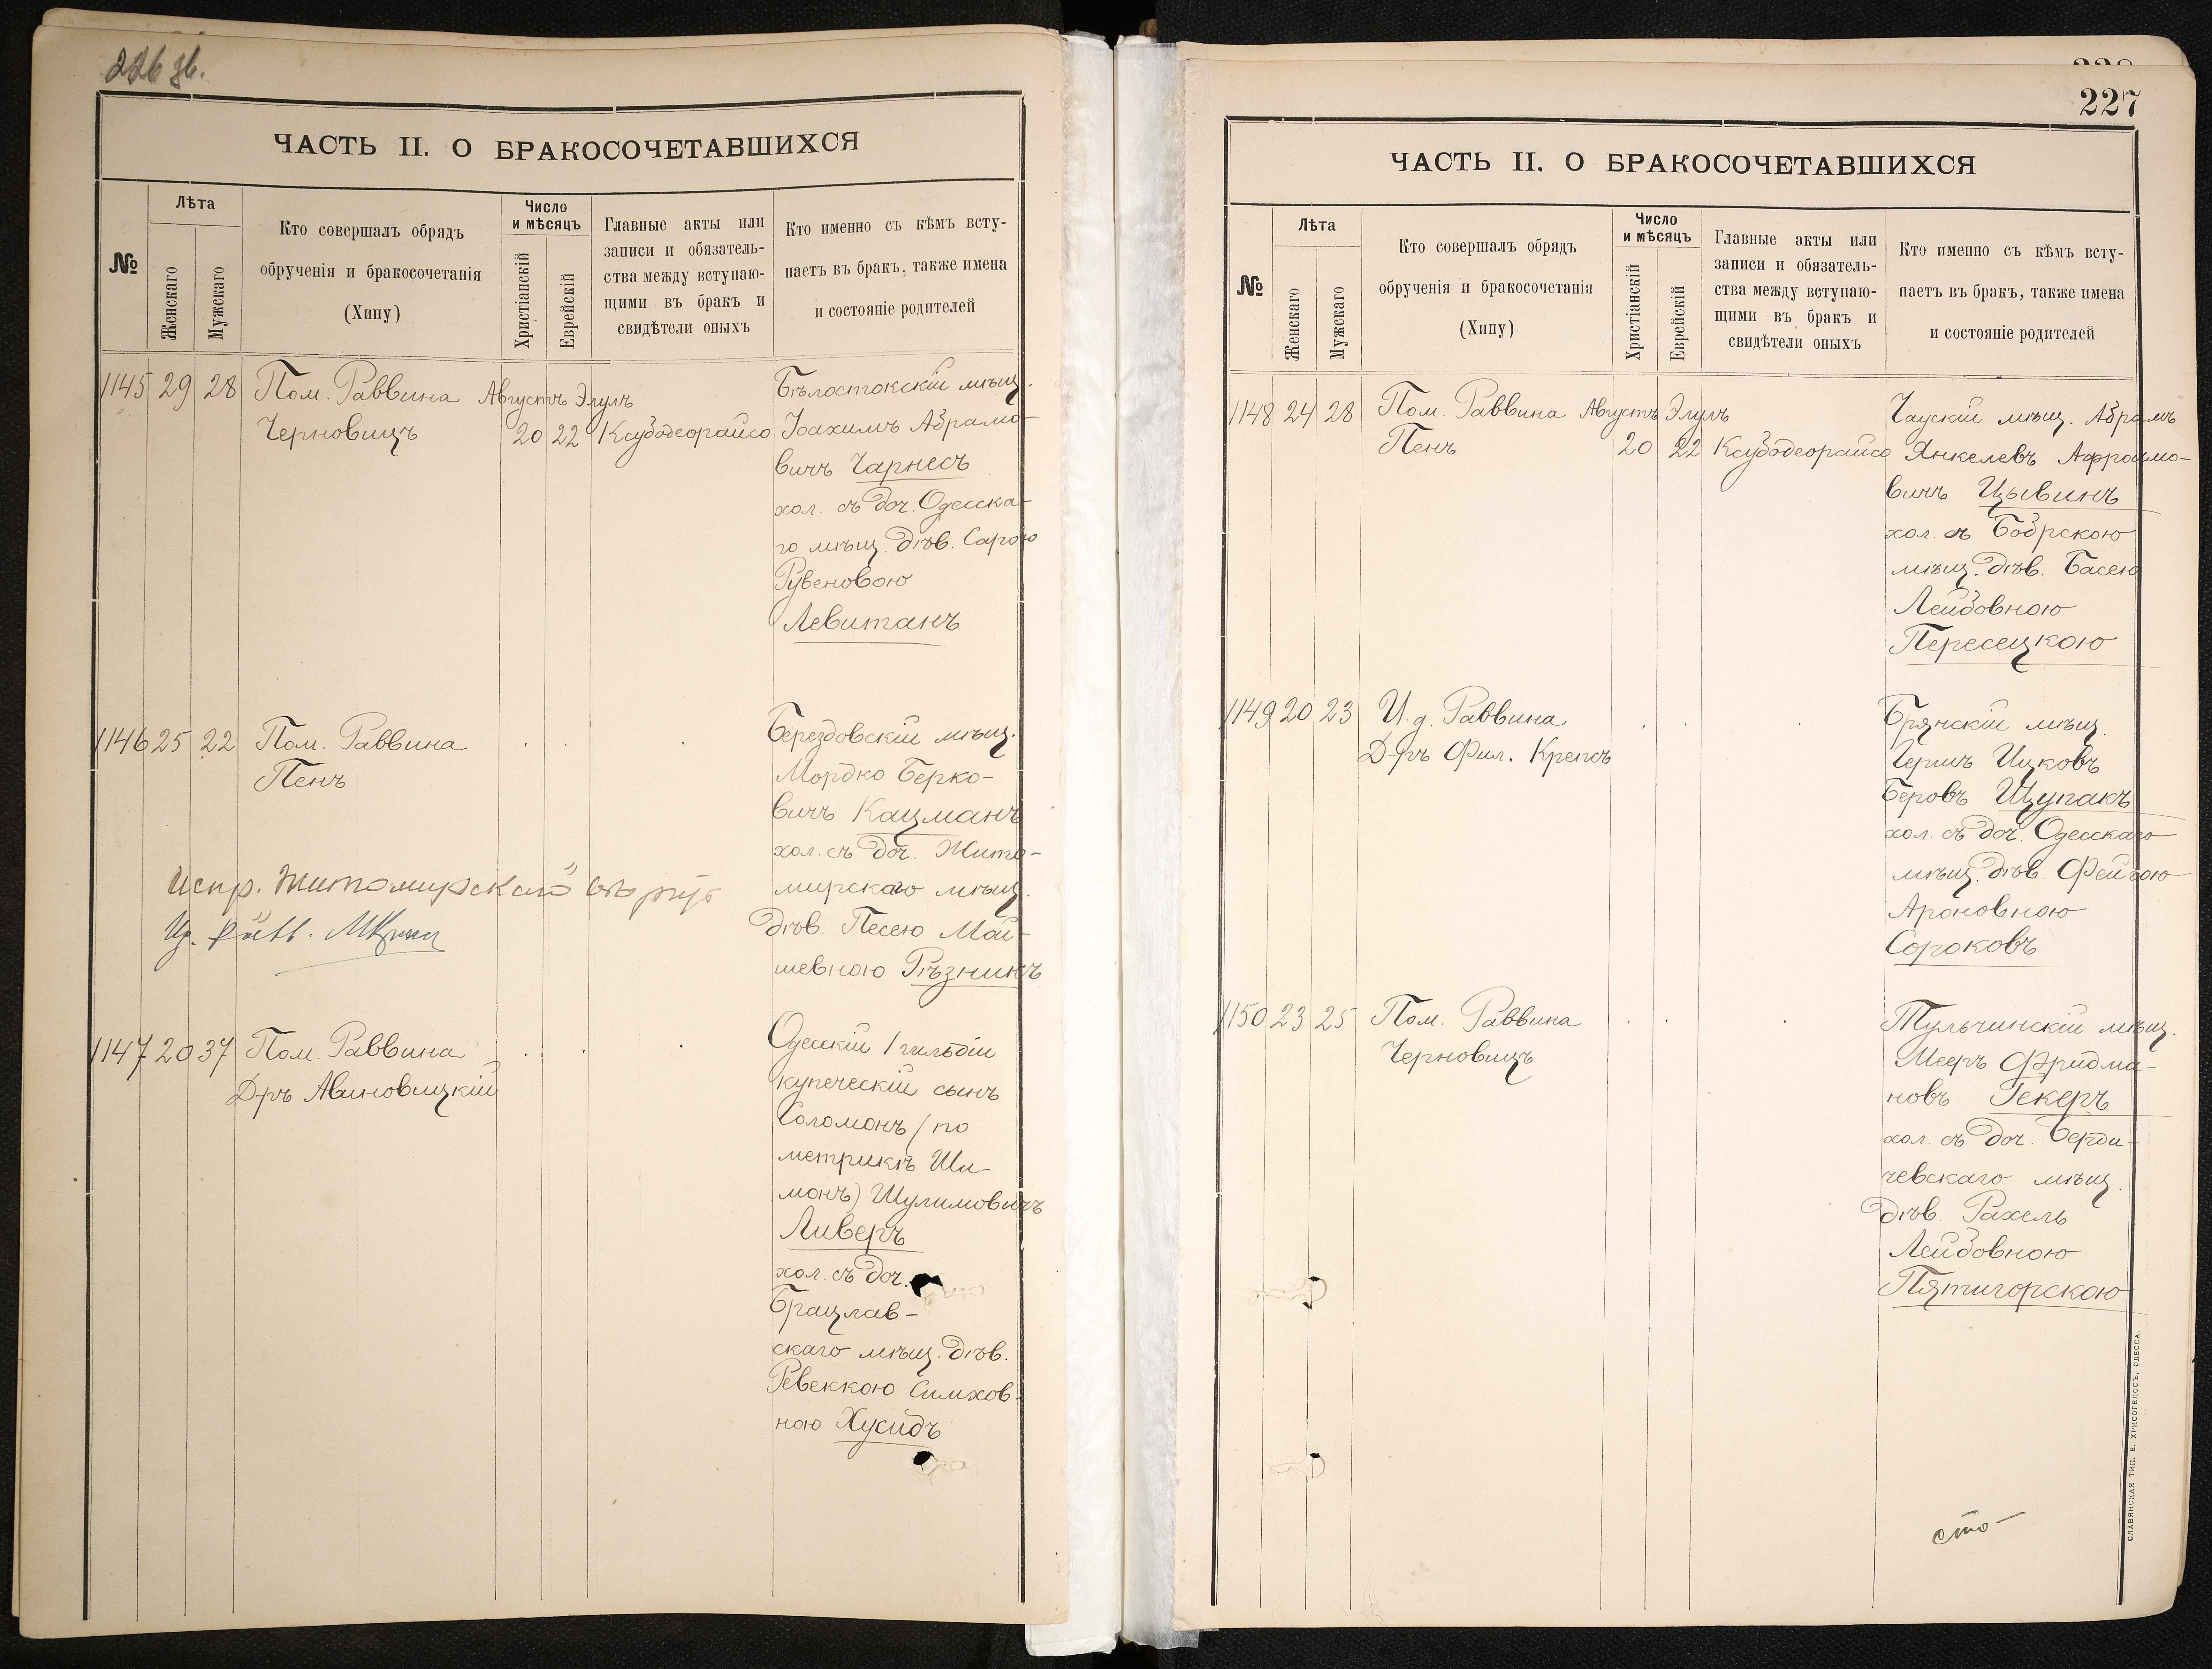 226 зв.
ЧАСТЬ II. О БРАКОСОЧЕТАВШИХСЯ
№
Лѣта
Женскаго
Мужскаго
Кто совершалъ обрядъ
обрученія и бракосочетанія
(Хипу)
Число
и мѣсяцъ
Христіанскій
Еврейскій
Главные акты или
записи и обязатель-
ства между вступаю-
щими въ бракъ и
свидѣтели оныхъ
Кто именно съ кѣмъ всту-
паетъ въ бракъ, также имена
и состояніе родителей
1145 29 28 Пом. Раввина Августъ Элулъ
Черновицъ 20 22 Ксубодеорайсо
Бѣлостокскій мѣщ.
Іоахимъ Абрамо-
вичъ Чарнесъ
хол. съ доч. Одесска-
го мѣщ. дѣв. Сарою
Рувеновою
Левитанъ
1146 25 22 Пом. Раввина
Пенъ
Берездовскій мѣщ.
Мордко Берко-
вичъ Кацманъ
хол. съ доч. Жито-
мирскаго мѣщ.
дѣв. Песею Мой-
шевною Рѣзникъ
испр. Житомирской
1147 20 37 Пом. Раввина
Д-ръ Авиновицкій
Одесскій 1 гильдіи
купеческій сынъ
Соломонъ (по
метрикѣ Ши-
монъ) Шулимовичъ
Ливеръ
хол. съ доч.
Брацлав-
скаго мѣщ. дѣв.
Ревеккою Симхов-
ною Хусидъ
227
ЧАСТЬ II. О БРАКОСОЧЕТАВШИХСЯ
№
Лѣта
Женскаго
Мужскаго
Кто совершалъ обрядъ
обрученія и бракосочетанія
(Хипу)
Число
и мѣсяцъ
Христіанскій
Еврейскій
Главные акты или
записи и обязатель-
ства между вступаю-
щими въ бракъ и
свидѣтели оныхъ
Кто именно съ кѣмъ всту-
паетъ въ бракъ, также имена
и состояніе родителей
1148 24 28 Пом. Раввина Августъ Элулъ
Пенъ 20 22 Ксубодеорайсо
Чаускій мѣщ. Абрамъ
Янкелевъ Афроимо-
вичъ Цывинъ
хол. съ Бобрскою
мѣщ. дѣв. Басею
Лейбовною
Пересецкою
1149 20 23 И. д. Раввина
Д-ръ Фил. Крепсъ
Брянскій мѣщ.
Гершъ Ицковъ
Беровъ Щупакъ
хол. съ доч. Одесскаго
мѣщ. дѣв. Фейгою
Ароновною
Сороковъ
1150 23 25 Пом. Раввина
Черновицъ
Тульчинскій мѣщ.
Мееръ Фридма-
новъ Гекеръ
хол. съ доч. Берди-
чевскаго мѣщ.
дѣв. Рахель
Лейбовною
Пятигорскою
сто-
СЛАВЯНСКАЯ ТИП. Е. ХРИСОГЕЛОСЪ, ОДЕССА.